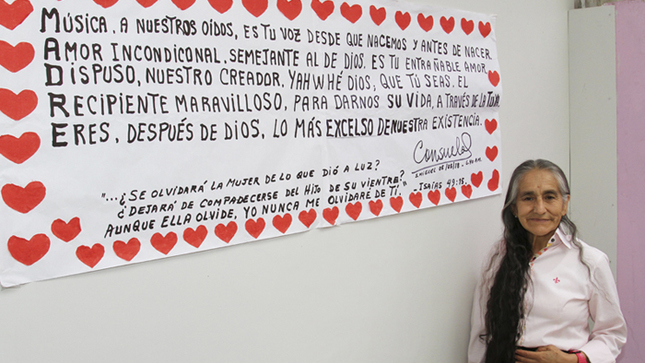 MÚSICA, A NUESTROS OIDOS, ES TU VOZ DESDE QUE NACEMOS Y ANTES DE NACER.
AMOR INCONDICONAL, SEMEJANTE AL DE DIOS. ES TU ENTRAÑABLE AMOR.
DISPUSO, NUESTRO CREADOR. YAHWHÉ DIOS, QUE TÚ SEAS. EL
RECIPIENTE MARAVILLOSO, PARA DARNOS SU VIDA, A TRAVÉS DE LA
ERES, DESPUÉS DE DIOS, LO MÁS EXCELSO DE NUESTRA EXISTENCIA.
Consuelo
"...¿SE OLVIDARÁ LA MUJER DE LO QUE DIÓ A LUZ?
¿DEJARÁ DE COMPADECERSE DEL HIJO DE SU VIENTRE?
AUNQUE ELLA OLVIDE, YO NUNCA ME OLVIDARÉ DE TÍ."
ISAÍAS 49:15.